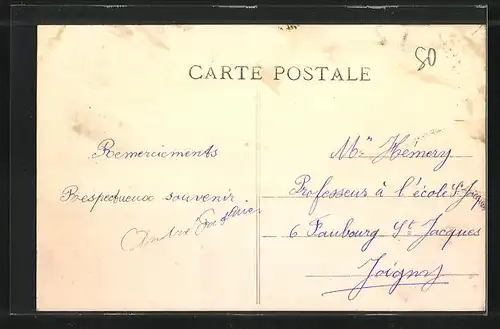 80
CARTE POSTALE
Remerciements
Respectueux souvenir
Mr Hémery
Professeur à l'école St Jacques
6 Faubourg St Jacques
Joigny